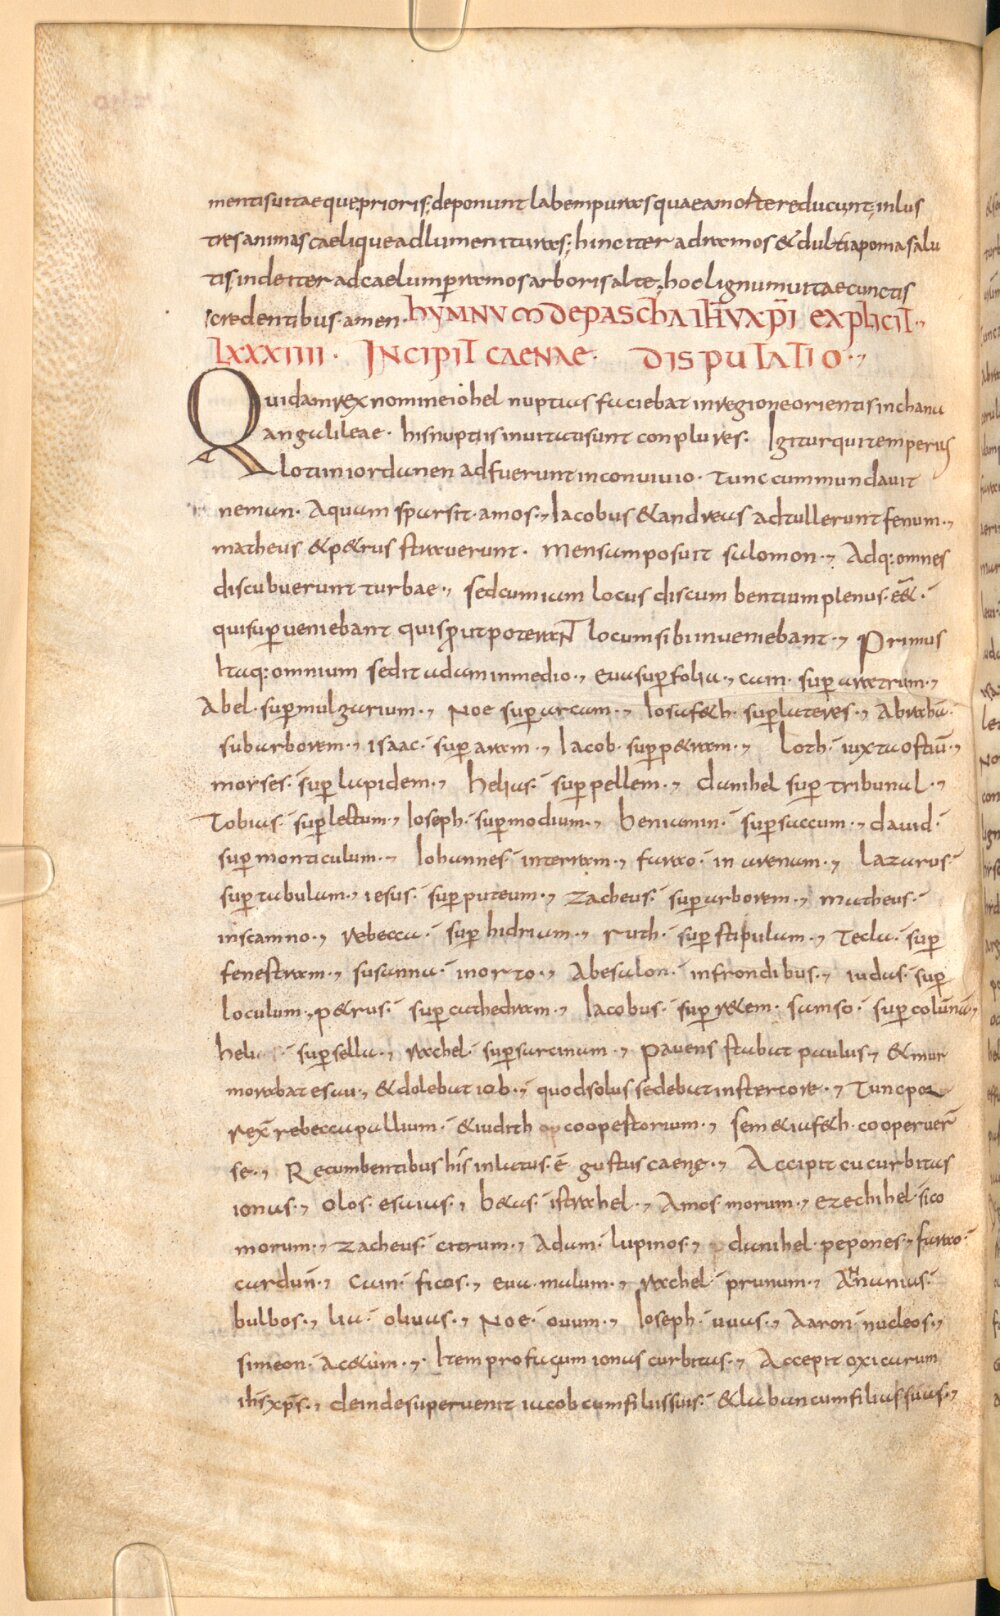 mentisuitaequeprioris; deponunt labempuras quaeamofte reducunt; inlus
tres animas caelique ad lumen ituras; hinc iter ad ramos & dultia poma salu
tis; inde iter ad caelum p ramos arboris alte; hoc lignum uitae cunctis
credentibus. amen. hYMNUM DE PASCHA IHU XPI EXPLICIT.,
LXXXIIII. INCIPIT CAENAE. DISPUTATIO.,
Quidam rex nomine iohel nuptias faciebat in regione orientis in chana
an galileae. his nuptiis inuitati sunt conplures. Igitur qui temperius
loti in iordanen adfuerunt in conuiuio. Tunc cummundauit
neman. Aquam sparsit. amos., Iacobus & andreas adtullerunt fenum.,
matheus & p&rus strauerunt. Mensam posuit salomon., Adq: omnes
discubuerunt turbae., sed cum iam locus discumbentium plenus. e&.
qui superueniebant quis prout poterant locum sibi inueniebant., Primus
Itaq: omnium sedit adam in medio., eua super folia., cain. super aratrum.,
Abel. super mulgarium., Noe super arcam., Iosafeth. super lateres., Abraha.
sub arborem., isaac. super aram., Iacob. super p&ram., Loth. iuxta ostiu.,
morses. super lapidem., helias. super pellem., danihel super tribunal.,
Tobias. super lectum., Ioseph. super modium., beniamin. super saccum., dauid.
super monticulum., Iohannes. in terram., farao. in arenam., Lazarus.
super tabulam., iesus. super puteum., zacheus. super arborem., matheus.
in scamno., rebecca. super hidriam., ruth. super stipulam., Tecla. super
fenestram., susanna. in orto., Abesalon. in frondibus., iudas. super
loculum., p&rus. super cathedram., Iacobus. super r&em. samso. super coluna.,
super sella., rachel. super sarcinam., pauens stabat paulus., & mur
morabat esau., & dolebat iob., quod solus sedebat in stercore., Tunc por
rex rebecca pallium. & iudith coopestorium., sem & iafeth. cooperuer
se., Recumbentibus his inlatus. e gustus caene., Accipit cucurbitas
ionas., olos. esaias., b&as. israhel., Amos. morum., ezechihel. sico
morum., zacheus. citrum., Adam. lupinos., danihel. pepones., farao.
cardun., Cain. ficos., eua. malum., rachel. prunum., Annanias.
bulbos., lia. oliuas., Noe. ouum., Ioseph. uuas., Aaron. nucleos.,
simeon. ac&um., Item profagum ionas curbitas., Accepit oxicarum
ihs xps., deinde superuenit iacob cum filiis suis. & laban cum filias suas.,